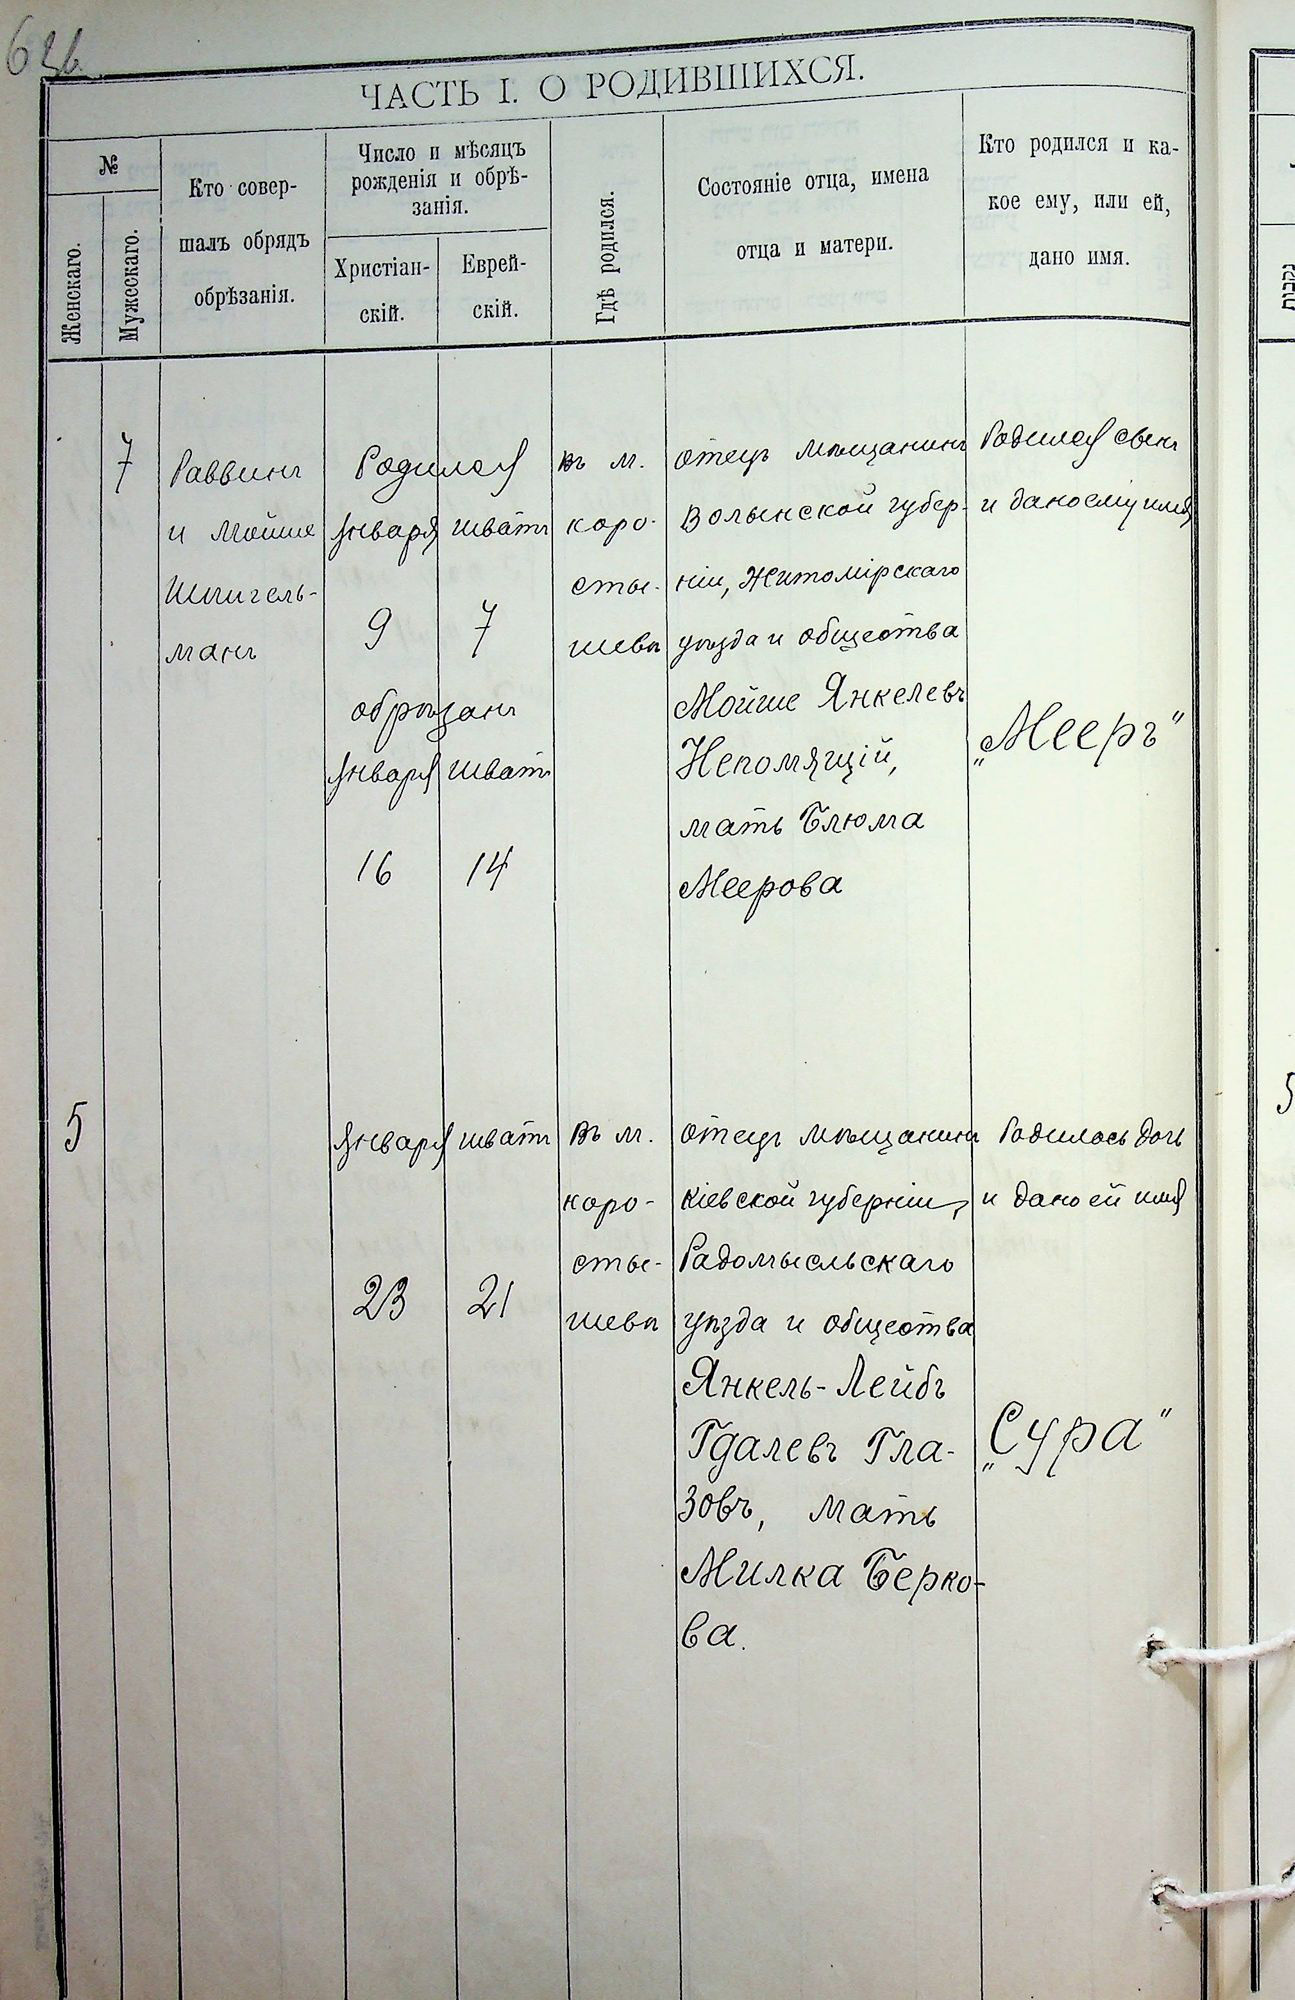 ЧАСТЬ I. О РОДИВШИХСЯ.
№
Женскаго.
Мужескаго.
Кто совер-
шалъ обрядъ
обрѣзанія.
Число и мѣсяцъ
рожденія и обрѣ-
занія.
Христіан-
скій.
Еврей-
скій.
Гдѣ родился.
Состояніе отца, имена
отца и матери.
Кто родился и ка-
кое ему, или ей,
дано имя.
7
Раввинъ
и Мойше
Шпигель-
манъ
Родился
Января Шватъ
9 7
обрѣзанъ
Января Шватъ
16 14
въ м.
Коро-
сты-
шевѣ
отецъ мѣщанинъ
Волынской губер-
ніи, Житомірскаго
уѣзда и общества
Мойше Янкелевъ
Непомящій,
мать Блюма
Меерова
Родился сынъ
и дано ему имя
„Мееръ"
5
Января Шватъ
23 21
въ м.
Коро-
сты-
шевѣ
отецъ мѣщанинъ
Кіевской губерніи,
Радомысльскаго
уѣзда и общества
Янкель-Лейбъ
Гдалевъ Гла-
зовъ, мать
Милка Берко-
ва.
Родилась дочь
и дано ей имя
„Сура"
נקבות
5